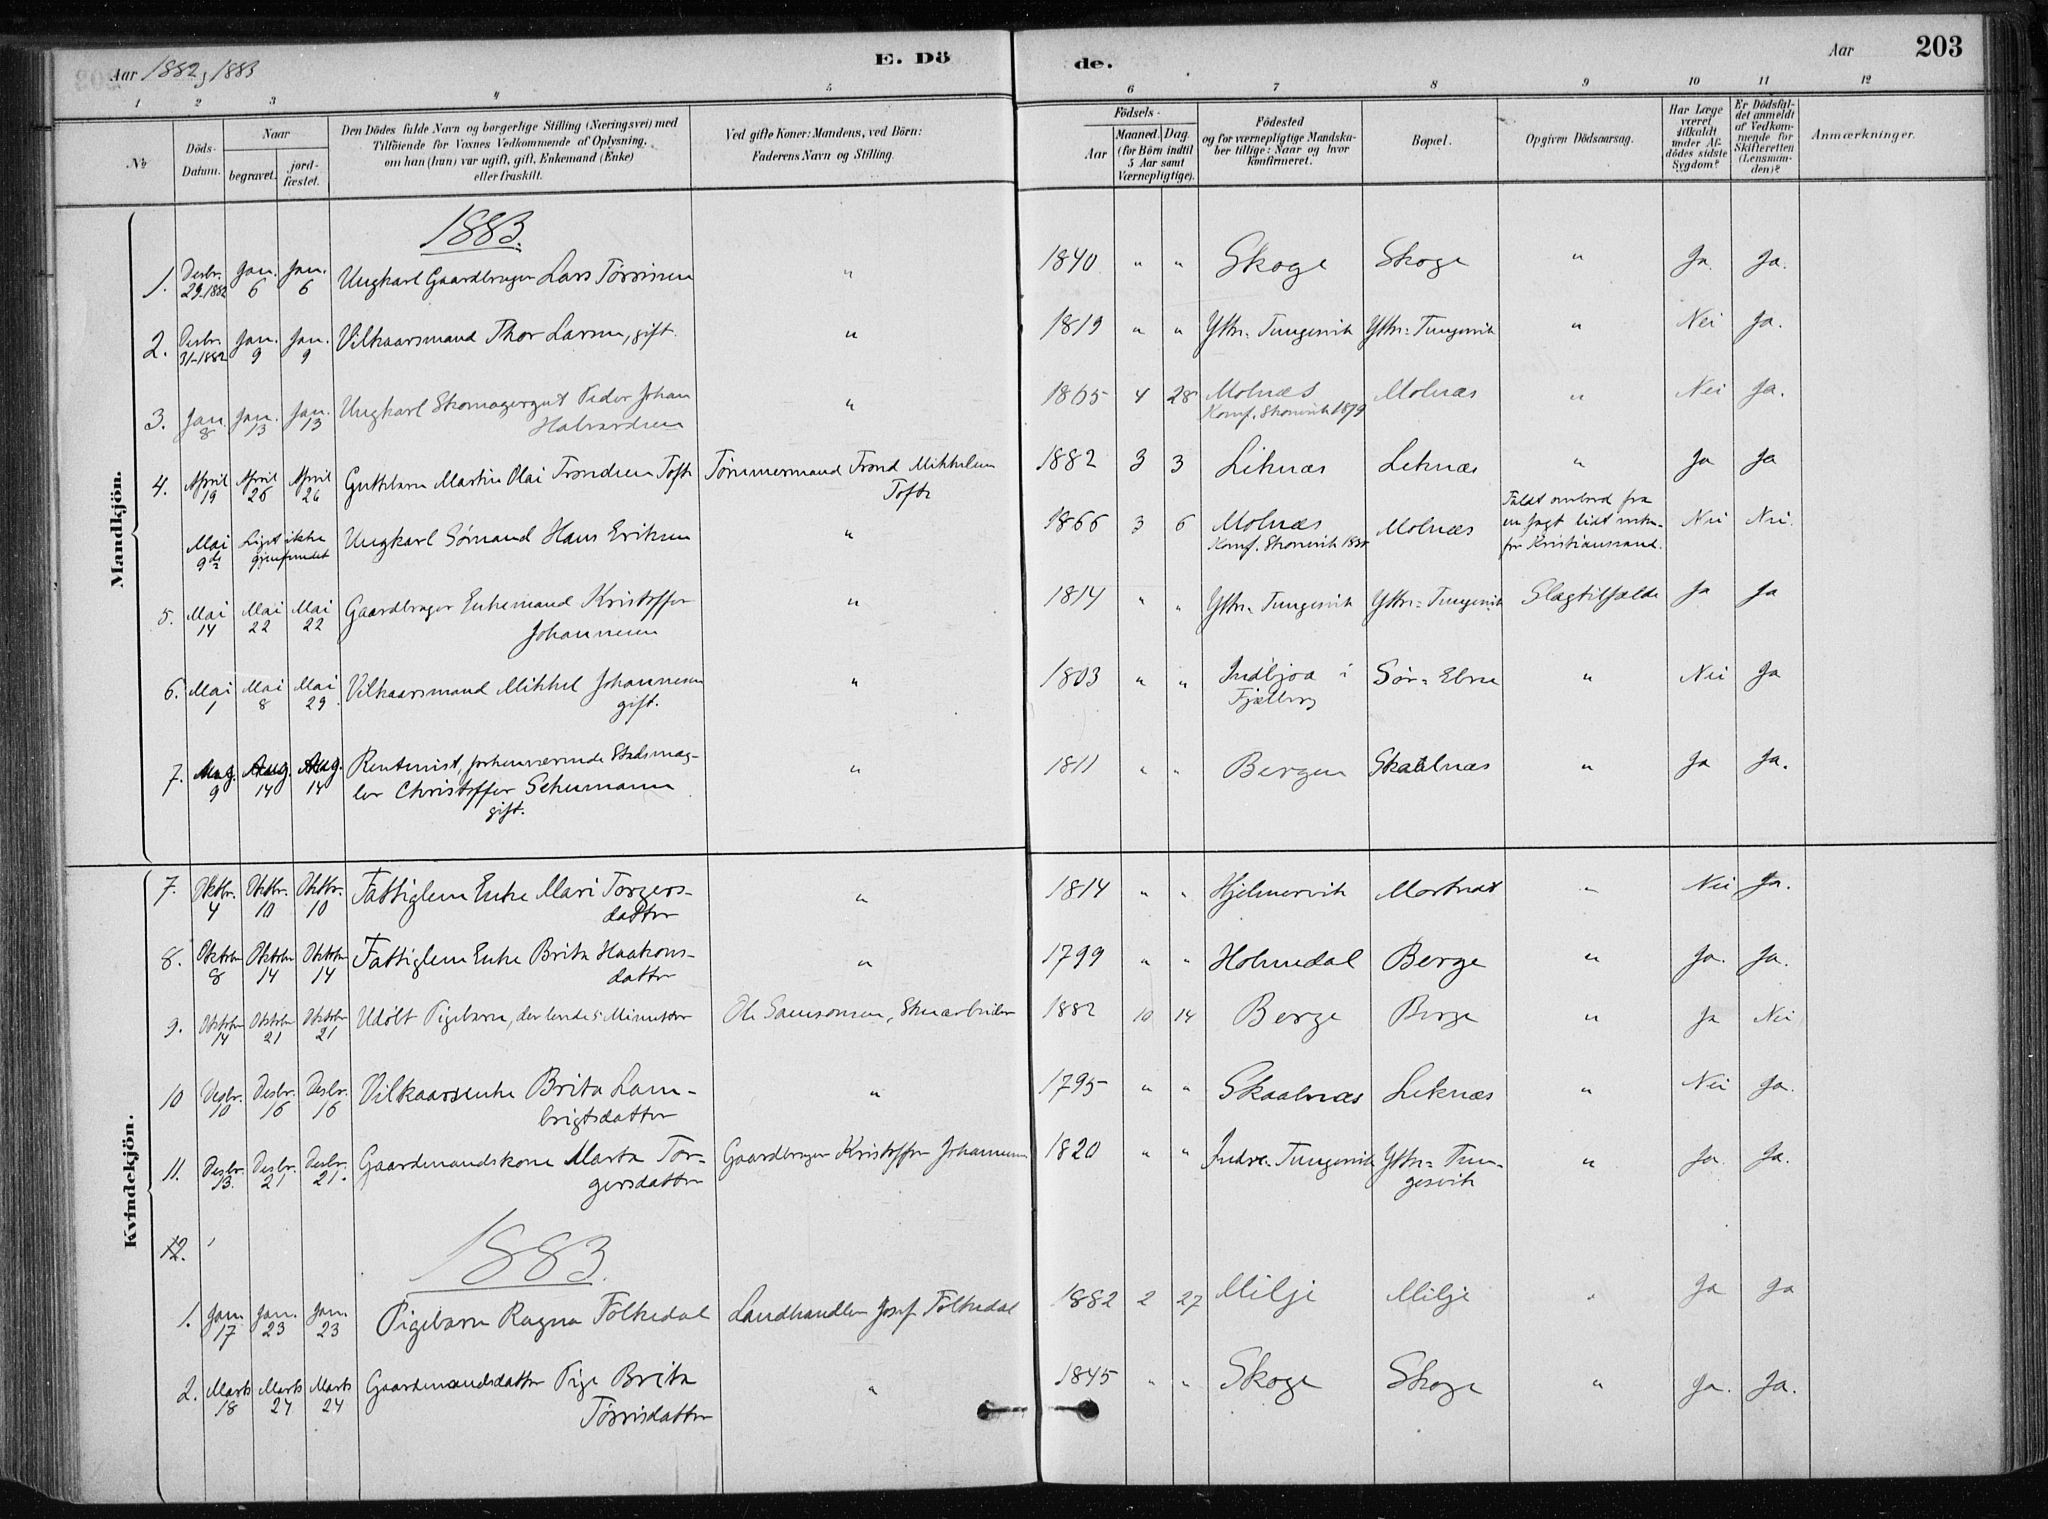 Aar 1882, 1883
E. Dö
de.
Aar
203
1 2 3 4 5 6 7 8 9 10 11 12
No
Döds-
Datum.
Naar
begravet.
jord-
fæstet.
Den Dödes fulde Navn og borgerlige Stilling (Næringsvei) med
Tilföiende for Voxnes Vedkommende af Oplysning,
om han (hun) var ugift, gift, Enkemand (Enke)
eller fraskilt.
Ved gifte Koner: Mandens, ved Börn:
Faderens Navn og Stilling.
Födsels-
Aar
Maaned. Dag.
(for Börn indtil
5 Aar samt
Værnepligtige).
Födested
og for værnepligtige Mandska-
ber tillige: Naar og hvor
konfirmeret.
Bopæl.
Opgiven Dödsaarsag.
Har Læge
været
tilkaldt
under Af-
dödes sidste
Sygdom?
Er Dödsfal-
det anmeldt
af Vedkom-
mende for
Skifteretten
(Lensman-
den)?
Anmærkninger.
Mandkjön.
1883.
1. Desbr. 29-1882 Jan. 6 Jan. 6 Ungkarl Gaardbruger Lars Tørrisen " 1840 " " Skoge Skoge " Ja. Ja.
2. Desbr. 31-1882 Jan. 9 Jan. 9 Vilkaarsmand Thor Larsen, gift. " 1819 " " Yttre-Tungesvik Yttre-Tungesvik " Nei Ja.
3. Jan. 8 Jan. 13 Jan. 13 Ungkarl Skomagergut Peder Johan
Halvardsen " 1865 4 28 Molnæs
Konf. Skonevik 1879 Molnæs " Nei Ja.
4. April 19 April 26 April 26 Guttebarn Martin Olai Trondsen Tofte Tømmermand Trond Mikkelsen
Tofte 1882 3 3 Leknæs Leknæs " Ja Ja
Mai 9de Liget ikke
gjenfundet Ungkarl Sømand Hans Eriksen " 1866 3 6 Molnæs
Konf. Skonevik Molnæs Faldt ombord fra
en Jagt lidt
for Kristianssand. Nei Nei.
5. Mai 14 Mai 22 Mai 22 Gaardbruger Enkemand Kristoffer
Johannesen " 1814 " " Yttre-Tungesvik Yttre-Tungesvik Slagtilfælde Ja Ja
6. Mai 1 Mai 8 Mai 29 Vilkaarsmand Mikkel Johannesen
gift. " 1803 " " Indbjoa i
Fjelberg Sør-Ebne " Nei Ja
7. Aug. 9 Aug. 14 Aug. 14 Rentenist, forhenværende Stadsmæg-
ler Christoffer Schumann
gift. " 1811 " " Bergen Skaalnæs " Ja Ja.
Kvindekjön.
7. Oktbr. 4 Oktbr. 10 Oktbr. 10 Fattiglem Enke Mari Torgers-
datter " 1814 " " Hjelmervik " Nei Ja.
8. Oktober 8 Oktober 14 Oktober 14 Fattiglem Enke Brita Haakons-
datter " 1799 " " Holmedal Berge " Ja. Ja.
9. Oktober 14 Oktober 21 Oktober 21 Udøbt Pigebarn, der levde 5 Minutter Ole Samsonsen, 1882 10 14 Berge Berge " Ja Nei
10 Desbr. 10 Desbr. 16 Desbr. 16 Vilkaarsenke Brita Lam-
brigtsdatter " 1795 " " Skaalnæs Leknæs " Nei Ja.
11. Desbr. 13. Desbr. 21 Desbr. 21. Gaardmandskone Marta Tor-
gersdatter Gaardbruger Kristoffer Johannesen 1820 " " Indre-Tungesvik Yttre-Tun-
gesvik " Ja. Ja.
12.
1883.
1. Jan. 17 Jan. 23 Jan. 23 Pigebarn Ragna Følkedal Landhandler Josef Følkedal 1882 2 27 Milje Milje " Ja Ja
2. Marts 18 Marts 24 Marts 24 Gaardmandsdatter Pige Brita
Tørrisdatter " 1845 " " Skoge Skoge " Ja. Ja.